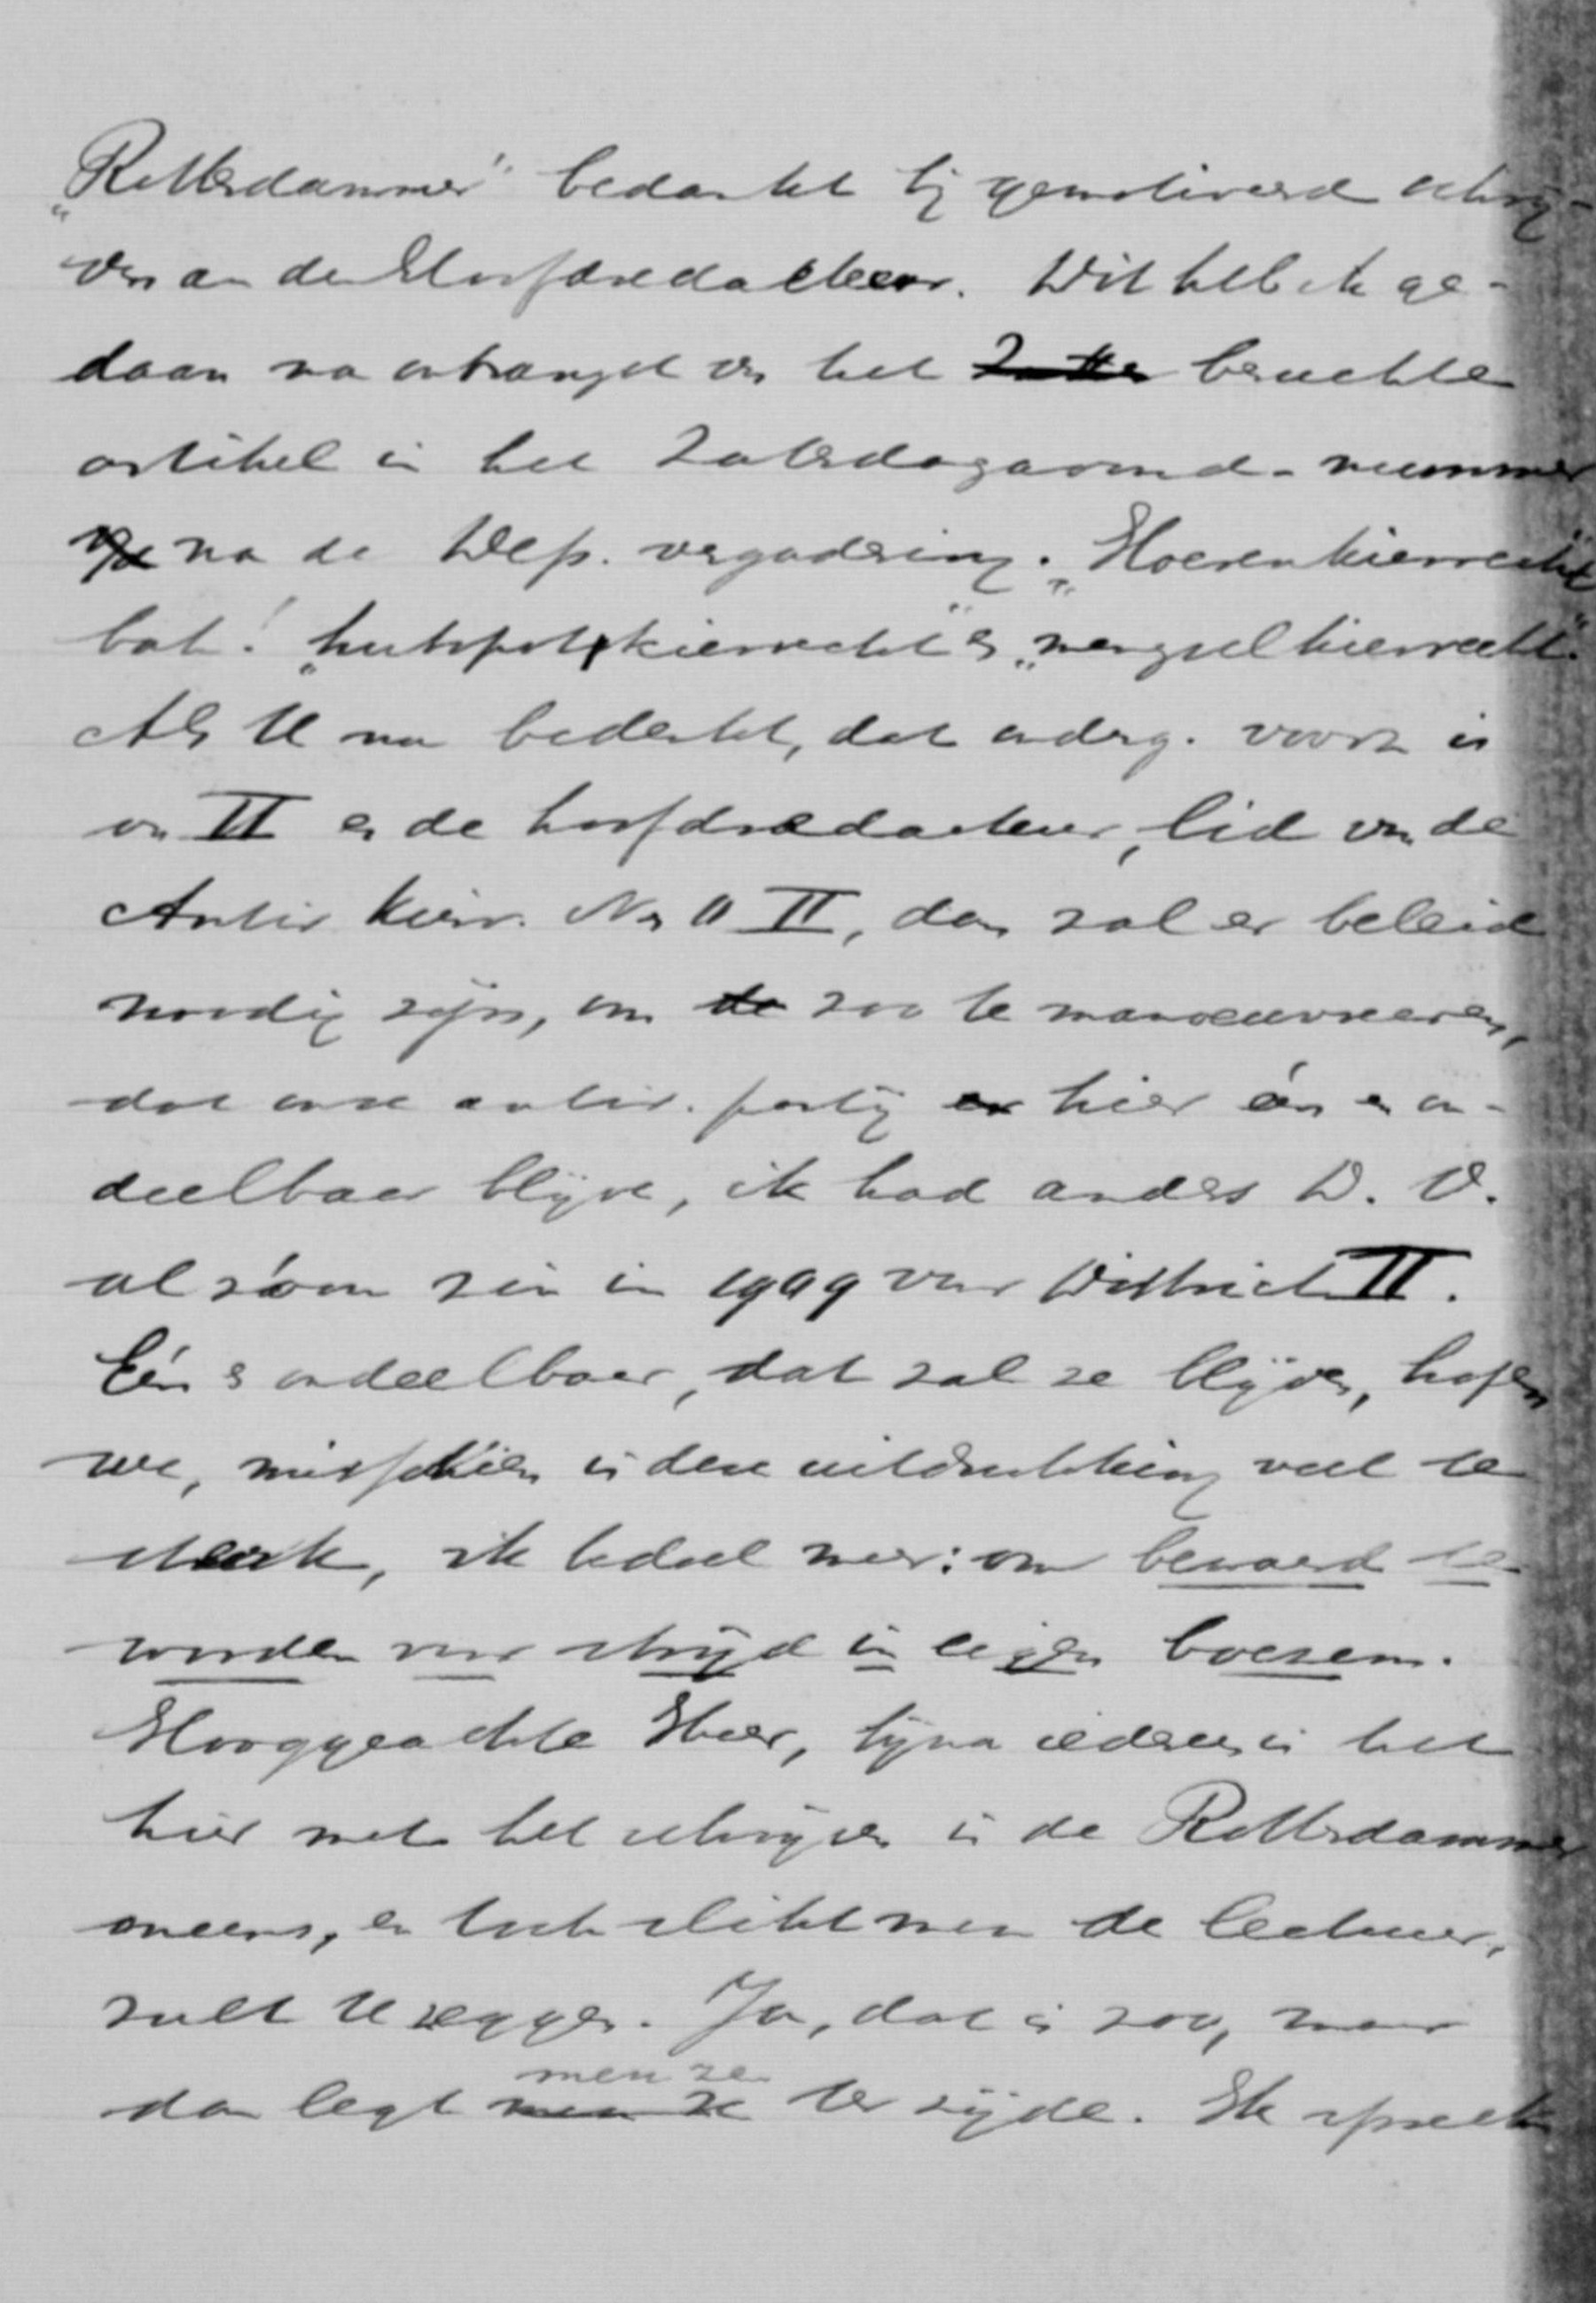 „Rotterdammer" bedankt bij gemotiveerd schrij-
ven aan den Hoofdredacteur. Dit heb ik ge-
daan na ontvangst van het beruchte
artikel in het Zaterdagavond-nummer
na de Dep. vergadering. „Hoerenkiesrecht"
bah! „hutspotkiesrecht" en „mengselkiesrecht".
Als U nu bedenkt, dat onderg. voorz. is
van II en de hoofdredacteur, lid van de
Antir. Kiesv. N. A II, dan zal er beleid
noodig zijn, om zoo te manoeuvreeren,
dat onze antir. partij hier één en on-
deelbaar blijve, ik had anders D. V.
al zóóveel zin in 1909 voor District II.
Eén & ondeelbaar, dat zal ze blijven, hopen
we, misschien is deze uitdrukking veel te
sterk, ik bedoel meer: om bewaard te
worden voor strijd in eigen boezem.
Hooggeachte Heer, bijna iedereen is het
hier met het schrijven in de Rotterdammer
oneens, en toch slikt men de lectuur,
zult U zeggen. Ja, dat is zoo, maar
dan legt men ze ter zijde. Ik spreek